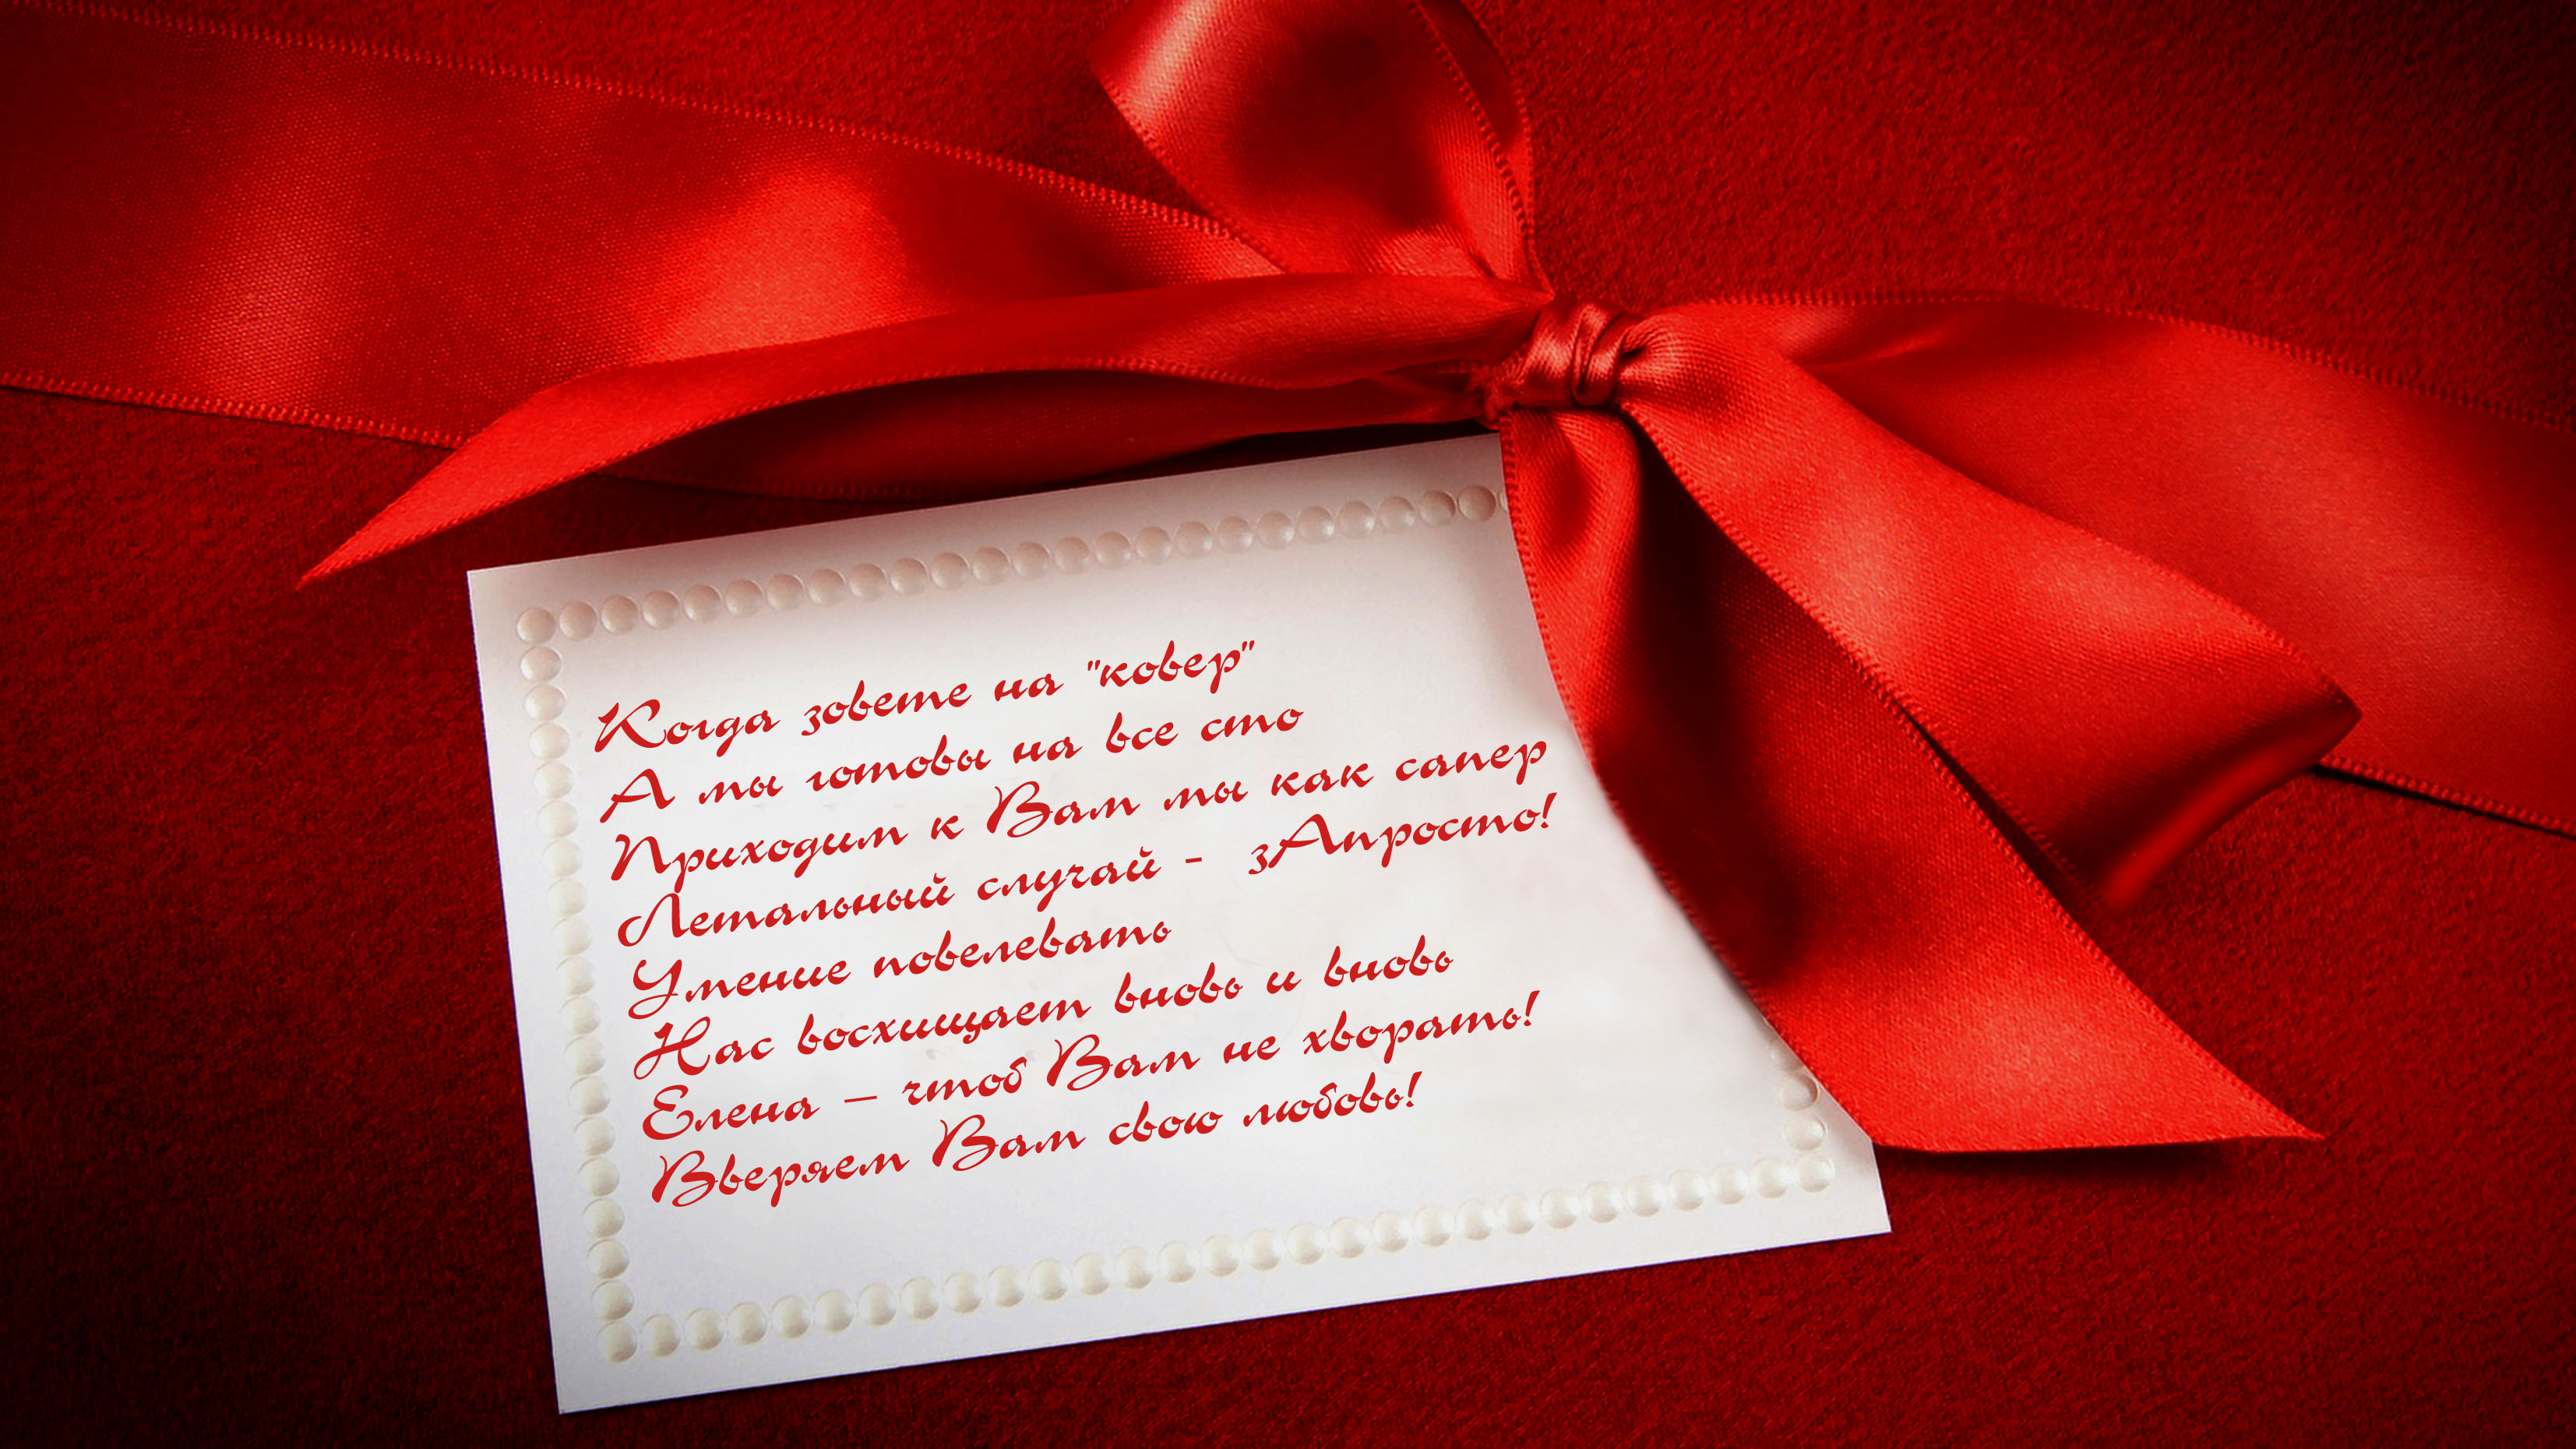 Когда зовете на "ковер"
А мы готовы на все сто
Приходим к Вам мы как сапер
Летальный случай - зАпросто!
Умение повелевать
Нас восхищает вновь и вновь
Елена – чтоб Вам не хворать!
Вверяем Вам свою любовь!